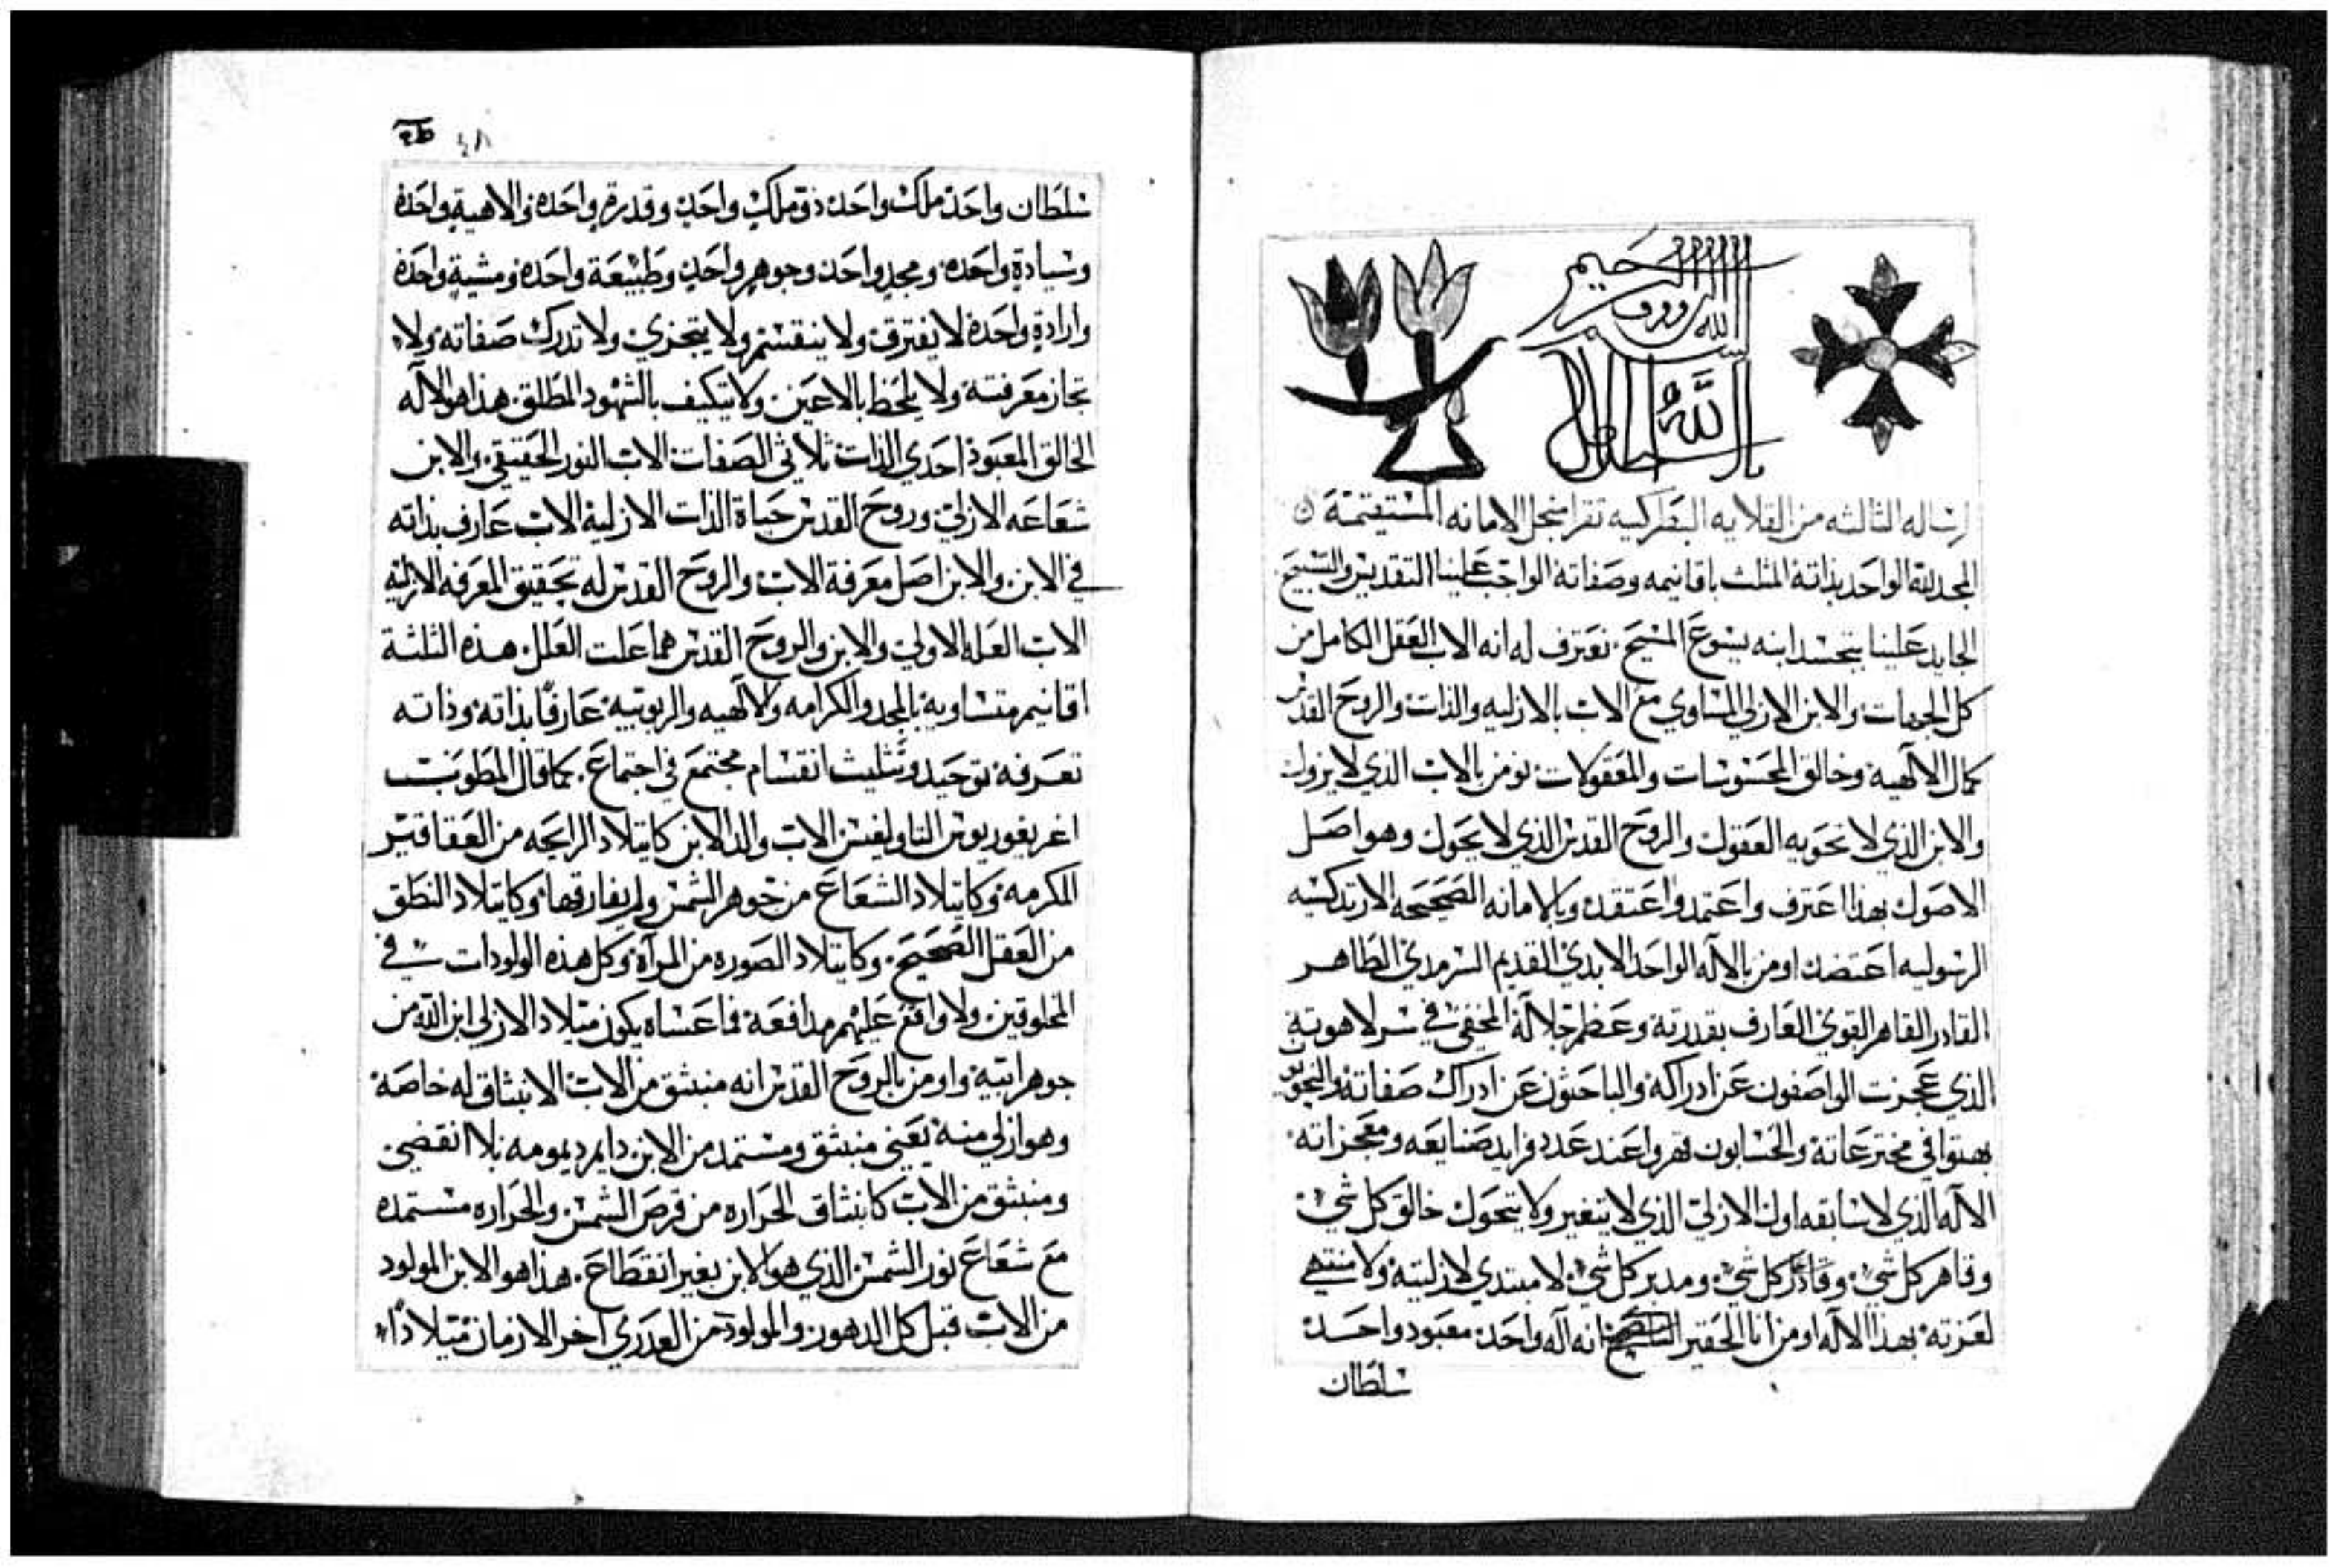 بسم الله الرووف الرحيم
رساله الثالثه من القلايه البطركيه تقرا منجل الامانه المستقيمة
المجد لله الواحد بذاته المثلث باقانيمه وصفاته الواجب علينا التقديس والتسبيح
الجايد علينا بتجسد ابنه يسوع المسيح. نعترف له انه الاب العقل الكامل من
كل الجهات والابن الازلي المساوي مع الاب بالازليه والذات والروح القدس
كمال الالهية وخالق المحسوسات والمعقولات نومن بالاب الذي لا يزول
والابن الذي لا تحويه العقول والروح القدس الذي لا يحول وهو اصل
الاصول بهذا اعترف واعتمد واعتقد وبالامانه الصحيحه الارتدكسيه
الرسوليه اعتضد اومن بالاله الواحد الابدي القديم السرمدي الطاهر
القادر القاهر القوي العارف بقدرته وعظم جلاله المخفي في سر لاهوته
الذي عجزت الواصفون عن ادراكه والباحثون عن ادراك صفاته
بهتوا في مخترعاته والحسابون قهروا عند عدد فرايد صنايعه ومعجزاته
الاله الذي لا سابقه اول الازلي الذي لا يتغير ولا يتحول خالق كل شي
وقاهر كل شي وقادر كل شي ومدبر كل شي لا مبتدي لازليته ولا منتهي
لعزته بهذا الاله اومن انا الحقير انه اله واحد معبود واحد
سلطان
٤٨
سلطان واحد ملك واحد ذو ملك واحد وقدرة واحده والاهية واحدة
وسيادة واحده ومجد واحد وجوهر واحد وطبيعة واحده ومشية واحدة
وارادة واحدة لا يفترق ولا ينقسم ولا يتجزي ولا تدرك صفاته ولا
تجاز معرفته ولا يلحظ بالاعين ولا يتكيف بالشهود المطلق هذا هو الاله
الخالق المعبود احدي الذات ثلاثي الصفات الاب النور الحقيقي والابن
شعاعه الازلي وروح القدس حياة الذات الازلية الاب عارف بذاته
في الابن والابن اصل معرفة الاب والروح القدس له تحقيق المعرفه الازليه
الاب العله الاولي والابن والروح القدس هما علت العلل هذه الثلثة
اقانيم متساويه بالمجد والكرامه والالهيه والربوبيه عارفا بذاته وذاته
تعرفه توحيد وتثليث انقسام مجتمع في اجتماع. كما قال المطوب
اغريغوريوس التاولغس الاب والد الابن كايتلاد الرايحه من العقاقير
المكرمه وكايتلاد الشعاع من جوهر الشمس ولم يفارقها وكايتلاد النطق
من العقل الصحيح. وكايتلاد الصوره من المرآة وكل هذه الولودات في
المخلوقين ولا واقع عليهم مدافعة فما عساه يكون ميلاد الازلي ابن الله من
جوهر ابيه واومن بالروح القدس انه منبثق من الاب الانبثاق له خاصة
وهو ازلي منه يعني منبثق ومستمد من الابن دايم ديمومه بلا انقضي
ومنبثق من الاب كانبثاق الحراره من قرص الشمس والحراره مستمده
مع شعاع نور الشمس الذي هو الابن بغير انقطاع. هذا هو الابن المولود
من الاب قبل كل الدهور والمولود من العدري اخر الازمان ميلادا